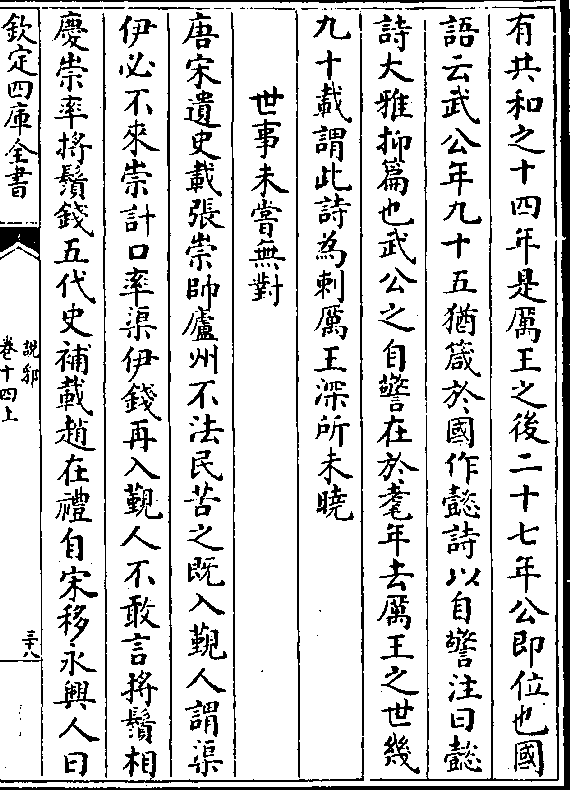 有共和之十四年是厲王之後二十七年公即位也國
語云武公年九十五猶箴於國作懿詩以自警注曰懿
詩大雅抑篇也武公之自警在於耄年去厲王之世幾
九十載謂此詩為刺厲王深所未曉
世事未嘗無對
唐宋遺史載張崇帥廬州不法民苦之既入覲人謂渠
伊必不來崇計口率渠伊錢再入覲人不敢言捋鬚相
慶崇率捋鬚錢五代史補載趙在禮自宋移永興人曰
欽定四庫全書
說郛
卷十四上
三十八